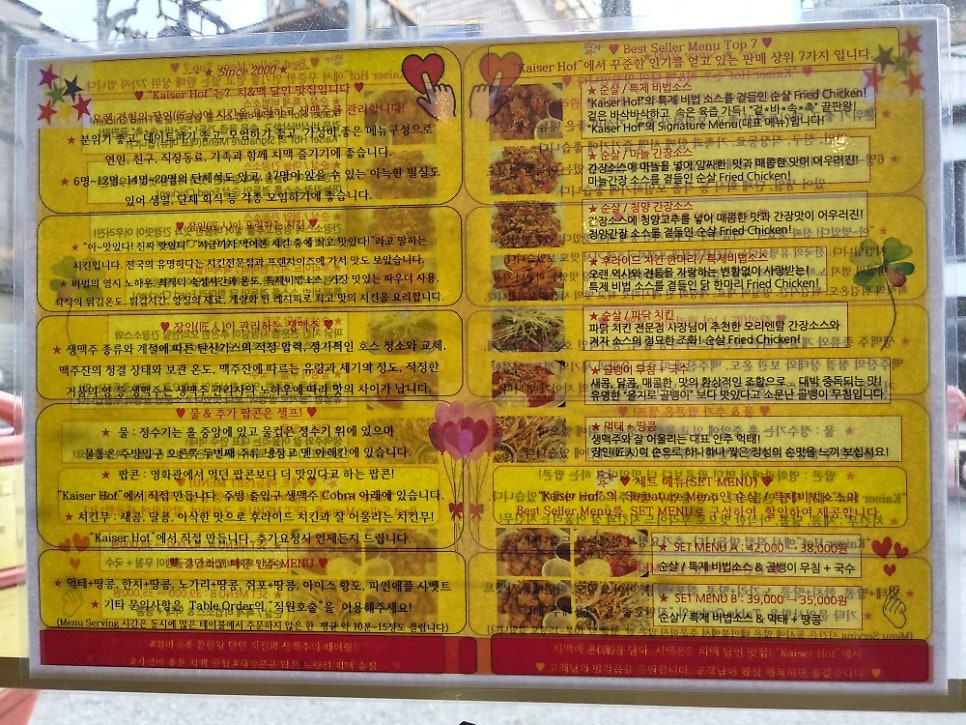 ★ Since 2000
♥ "Kaiser Hof"는? 치&맥 달인 맛집입니다 ♥
★ 분위기 좋고, 데이트하기 좋고, 모임하기 좋고, 가성비 좋은 메뉴구성으로
연인, 친구, 직장동료, 가족과 함께 치맥 즐기기에 좋습니다.
★ 6명~12명, 14명~20명의 단체석도 있고, 17명이 앉을 수 있는 아늑한 별실도
있어 생일, 단체 회식 등 각종 모임하기에 좋습니다.
★ "아~맛있다! 진짜 맛있다!" "지금까지 먹어본 치킨 중에 최고 맛있다!"라고 말하는
치킨입니다. 전국의 유명하다는 치킨전문점과 프랜차이즈에 가서 맛도 보았습니다.
♥ 장인(匠人)이 관리하는 생맥주 ♥
★ 생맥주 종류와 계절에 따른 탄산가스의 적정 압력, 정기적인 호스 청소와 교체,
맥주잔의 청결 상태와 보관 온도, 맥주잔에 따르는 유량과 세기의 정도, 적정한
거품의 양 등 생맥주는 생맥주 관리자의 노하우에 따라 맛의 차이가 납니다.
♥ 물 & 추가 팝콘은 셀프! ♥
★ 물 : 정수기는 홀 중앙에 있고 물컵은 정수기 위에 있으며
물통은 주방입구 왼쪽 두번째 주류 냉장고 맨 아래칸에 있습니다.
★ 팝콘 : 영화관에서 먹던 팝콘보다 더 맛있다고 하는 팝콘!
"Kaiser Hof"에서 직접 만듭니다. 주방 출입구 생맥주 Cobra 아래에 있습니다.
★ 치킨무 : 새콤, 달콤, 아삭한 맛으로 후라이드 치킨과 잘 어울리는 치킨무!
"Kaiser Hof"에서 직접 만듭니다. 추가요청시 언제든지 드립니다.
★ 먹태+땅콩, 한치+땅콩, 노가리+땅콩, 쥐포+땅콩, 아이스 황도, 파인애플 샤벳트
★ 기타 문의사항은 Table Order의 "직원호출"을 이용해주세요!
(Menu Serving 시간은 동시에 많은 테이블에서 주문하지 않은 한 평균 약 10분~15정도 걸립니다)
♥ Best Seller Menu Top 7 ♥
"Kaiser Hof"에서 꾸준한 인기를 얻고 있는 판매 상위 7가지 입니다.
★ 순살 / 특제 비법소스
"Kaiser Hof"의 특제 비법 소스를 곁들인 순살 Fried Chicken!
겉은 바삭바삭하고 속은 육즙 가득! "겉•바•속•촉" 끝판왕!
"Kaiser Hof"의 Signature Menu(대표 메뉴)입니다!
★ 순살 / 마늘 간장소스
간장소스에 마늘을 넣어 알싸한 맛과 매콤한 맛이 어우러진!
마늘간장 소스를 곁들인 순살 Fried Chicken!
★ 순살 / 청양 간장소스
간장소스에 청양고추를 넣어 매콤한 맛과 간장맛이 어우러진!
청양간장 소스를 곁들인 순살 Fried Chicken!
★ 후라이드 치킨 한마리 / 특제비법소스
오랜 역사와 전통을 자랑하는 변함없이 사랑받는!
특제 비법 소스를 곁들인 닭 한마리 Fried Chicken!
★ 순살 / 파닭 치킨
파닭 치킨 전문점 사장님이 추천한 오리엔탈 간장소스와
겨자 소스의 절묘한 조화! 순살 Fried Chicken!
★ 골뱅이 무침 + 국수
새콤, 달콤, 매콤한, 맛의 환상적인 조합으로... 대박 중독되는 맛!
유명한 "을지로 골뱅이" 보다 맛있다고 소문난 골뱅이 무침입니다.
★ 먹태 + 땅콩
생맥주와 잘 어울리는 대표 안주 먹태!
장인(匠人)의 손맛을 느껴 보십시요!
♥ 세트 메뉴(SET MENU) ♥
"Kaiser Hof"의 Signature Menu인 순살 / 특제비법소스와
Best Seller Menu를 SET MENU로 구성하여, 할인하여 제공합니다.
★ SET MENU A : 42,000 → 38,000원
순살 / 특제 비법소스 & 골뱅이 무침 + 국수
★ SET MENU B : 39,000 → 35,000원
순살 / 특제 비법소스 & 먹태 + 땅콩